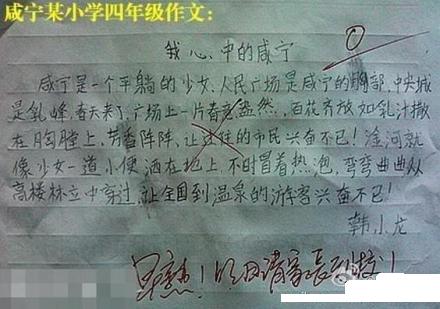 咸宁某小学四年级作文:
我心中的咸宁
咸宁是一个平躺的少女、人民广场是咸宁的胸部、中央城
是乳峰、春天来了、广场上一片春意盎然，百花齐放如乳汁撒
在胸膛上、芳香阵阵、让过往的市民兴奋不已！淦河就
像少女一道小便洒在地上、不时冒着热泡、弯弯曲曲从
高楼林立中穿过、让全国到温泉的游客兴奋不已！
韩小龙
早熟！明日请家长到校！